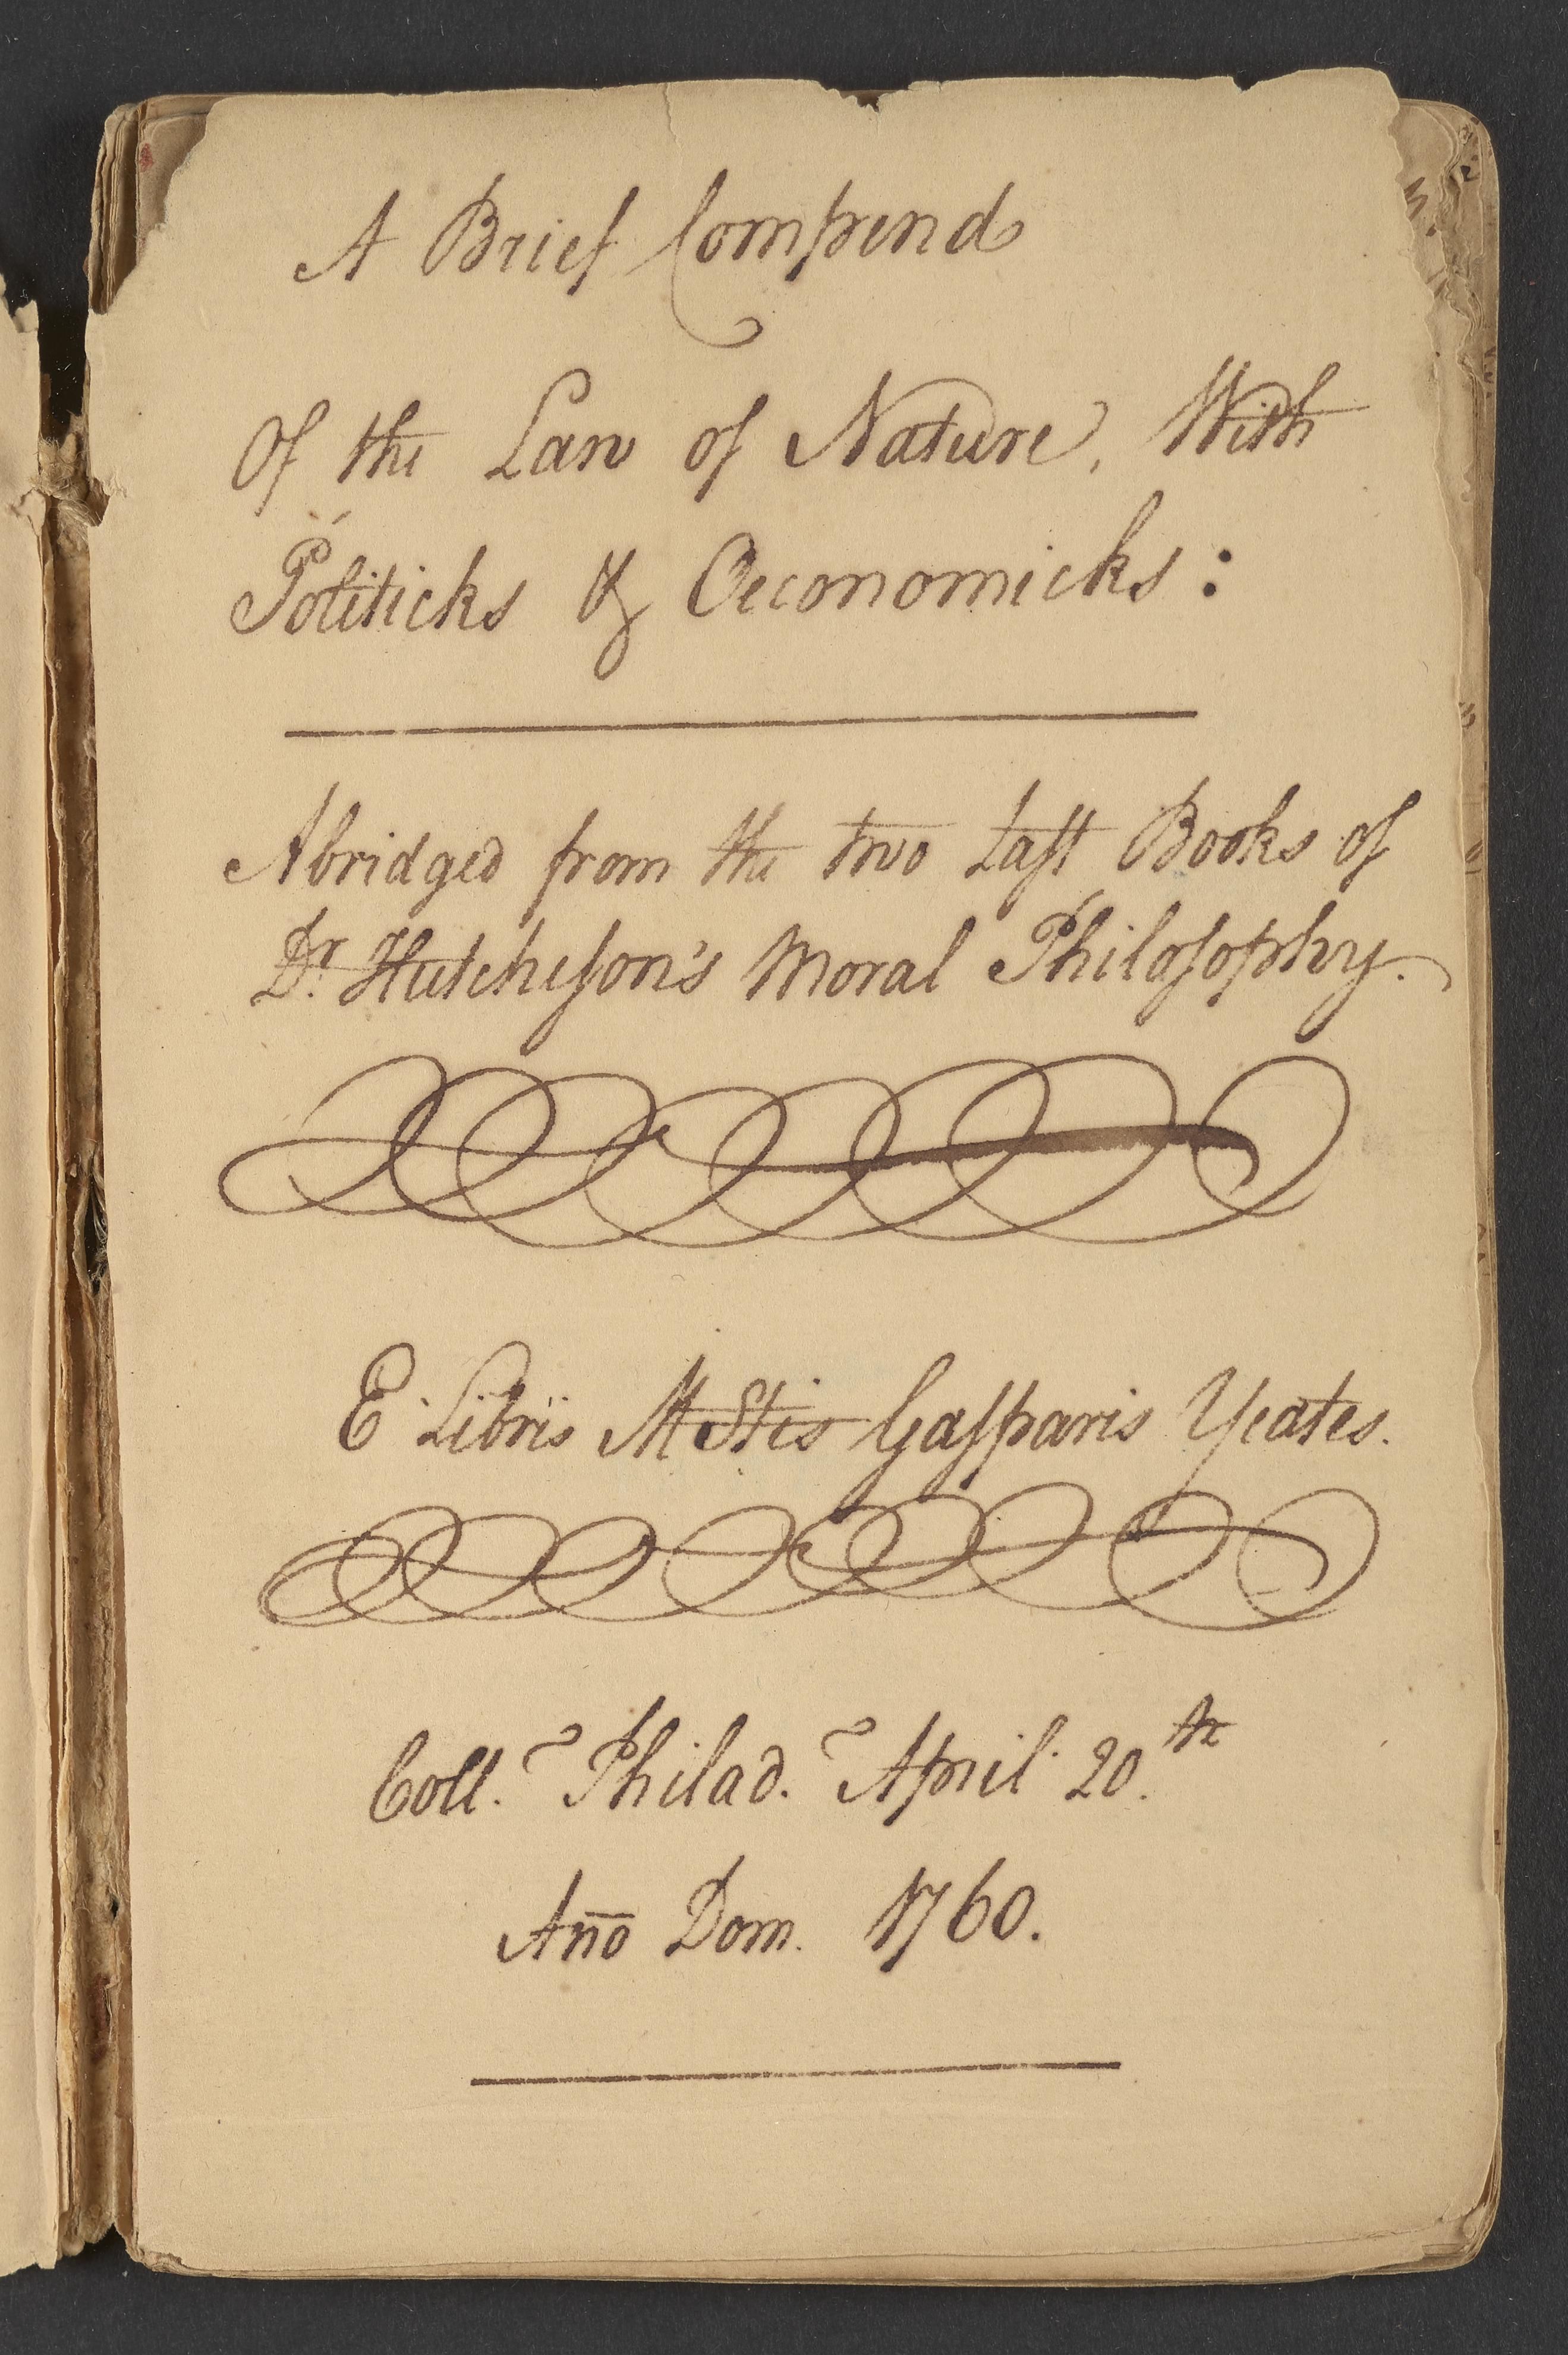 A Brief Compend
Of the Law of Nature, With
Politicks & Oeconomicks:
Abridged from the two Laſt Books of
Dr. Hutcheſon's Moral Philoſophy.
E Libris MStis Gaſparis Yeates.
Coll. Philad. April 20.th
Año Dom. 1760.